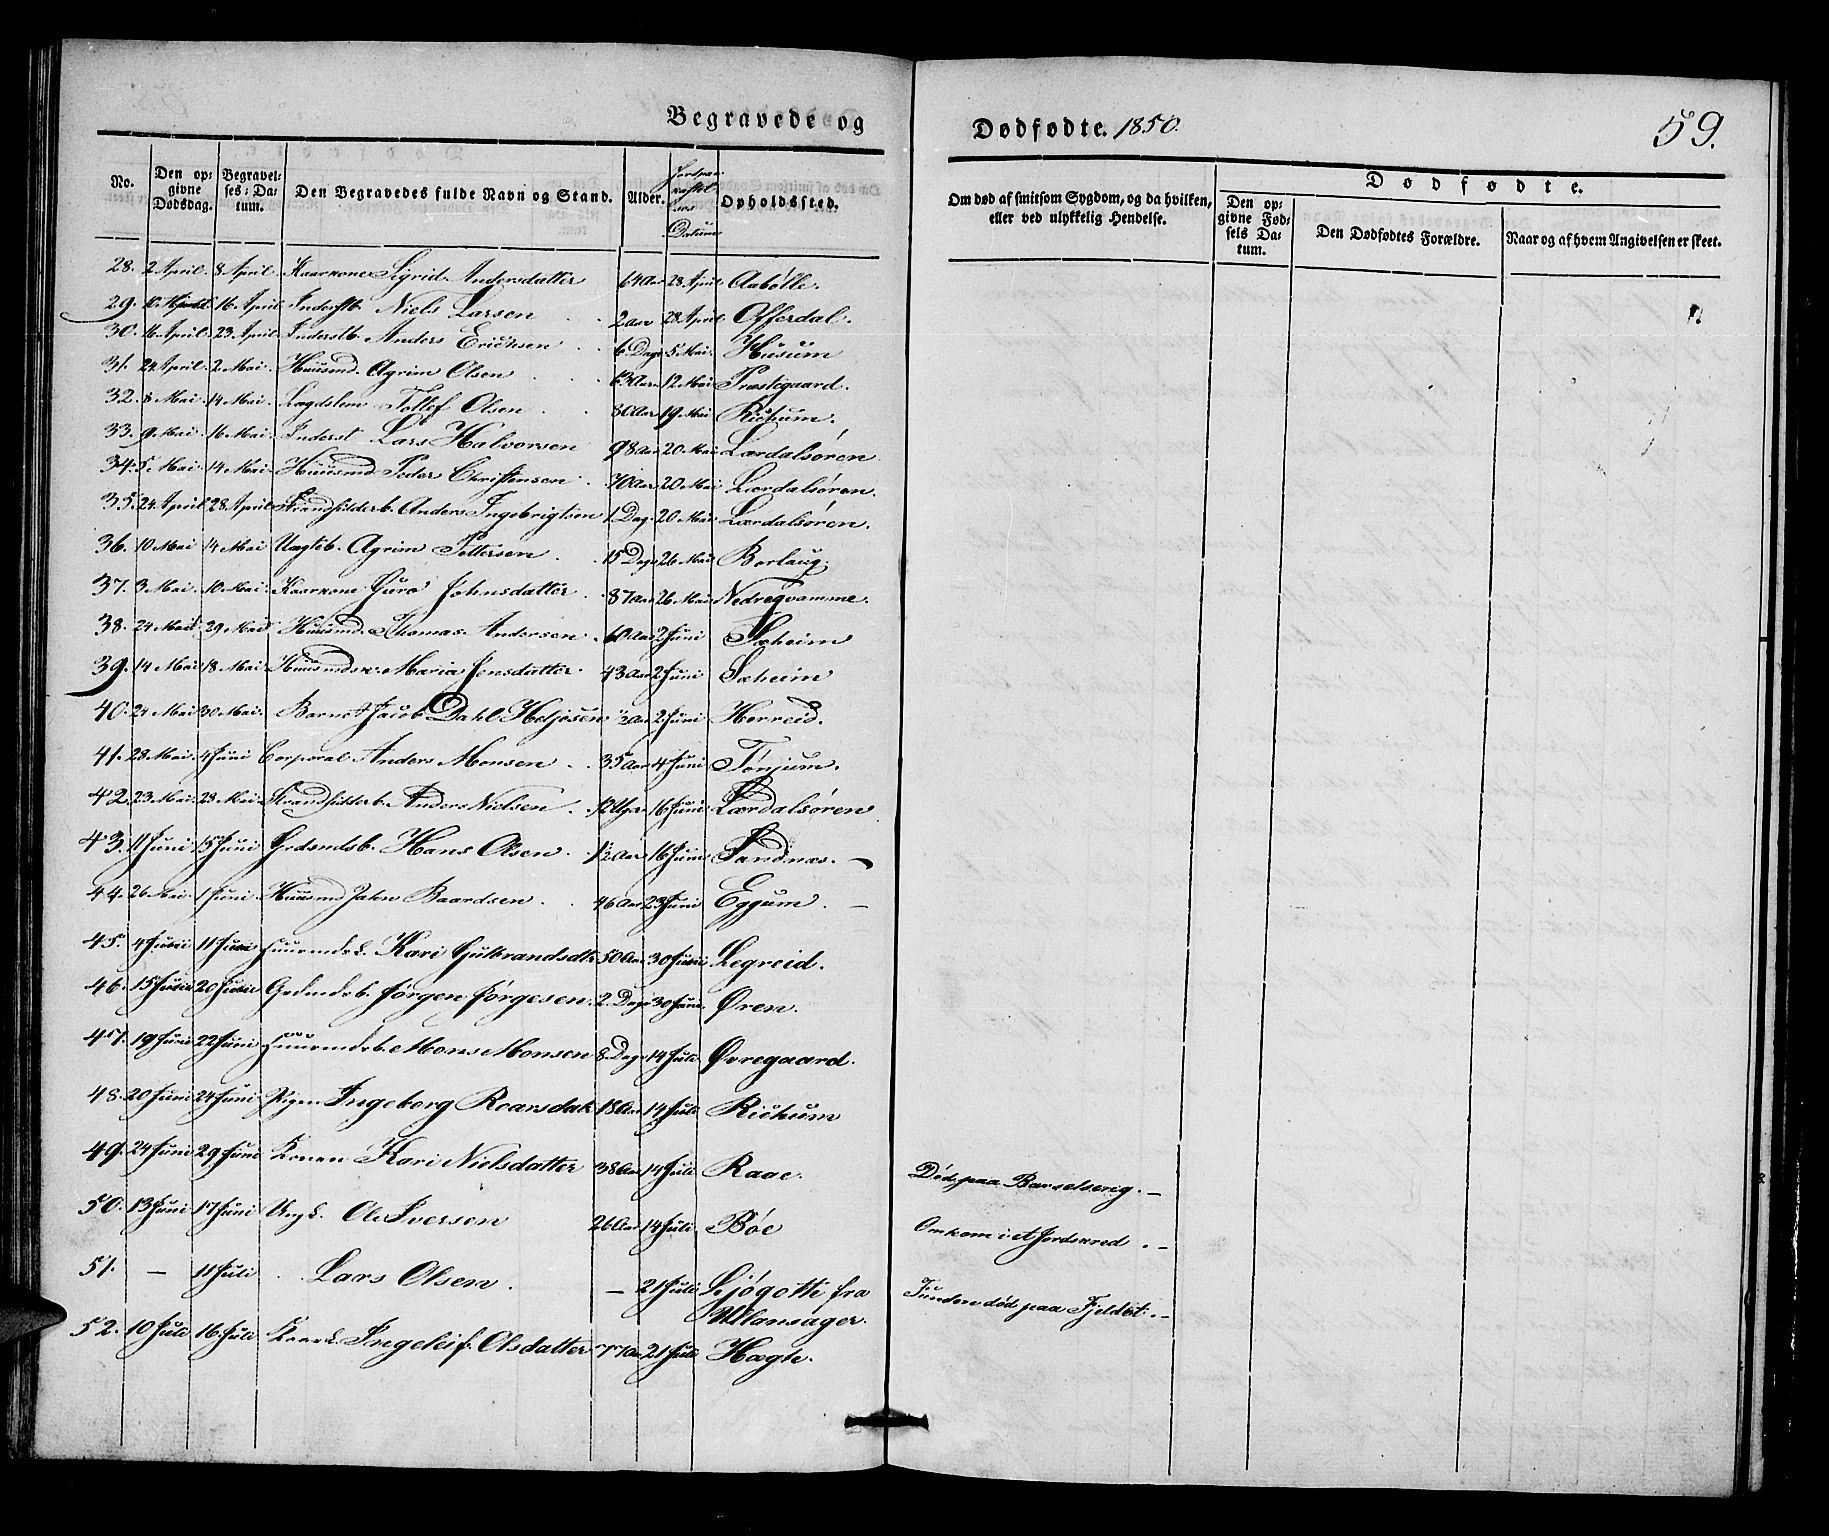 Begravede og
Dødfødte. 1850.
59.
No.
Den opgivne Dødsdag.
Begravelses-Datum.
Den Begravedes fulde Navn og Stand.
Alder.
Jordpaakastelses Datum
Opholdssted.
Om død af smitsom Sygdom, og da hvilken, eller ved ulykkelig Hendelse.
Dødfødte.
Den opgivne Fødsels Datum.
Den Dødfødtes Forældre.
Naar og af hvem Angivelsen er skeet.
28. 2 April. 8 April. Kaarkone Sigrid Andersdatter 64 Aar 28 April Aabølle.
29. 10 April 16 April Inderstb. Niels Larsen 2 aar 28 April Offerdal.
30. 16 April. 23 April Inderstb. Anders Erichsen 6 Dage 5 Mai. Husum
31. 24 April 2 Mai. Huusmd. Agrim Olsen 63 Aar 12 Mai Præstegaard.
32. 8 Mai 14 Mai. Lægdslem Tollef Olsen 80 Aar 19 Mai Richum.
33. 9 Mai 16 Mai. Inderst Lars Halvorsen 98 Aar 20 Mai Lærdalsøren
34. 5 Mai 14 Mai. Huusmd. Peder Christensen 70 Aar 20 Mai Lærdalsøren.
35. 24 April 28 April Strandsidderb. Anders Ingebrigtsen 1 Dag 20 Mai Lærdalsøren.
36. 10 Mai 14 Mai Uægteb. Agrim Pettersen 15 Dage 26 Mai Borlaug.
37. 3 Mai 10 Mai. Kaarkone Guro Johnsdatter 87 Aar 26 Mai Nedreqvamme.
38. 24 Mai 29 Mai Huusmd. Thomas Andersen 60 Aar 2 Juni Sæheim
39. 14 Mai 18 Mai Huusmds. Maria Jensdatter 43 Aar 2 Juni Sæheim
40. 24 Mai 30 Mai. Barnet Jacob Dahl Heljesen Aar 2 Juni Herreid.
41. 28 Mai. 4 Juni Corporal Anders Monsen 35 Aar 4 Juni Tønjum.
42. 23 Mai. 28 Mai Strandsidderb. Anders Nielsen 12 Uger 16 Juni Lærdalsøren
43. 11 Juni 15 Juni Grdmdsb. Hans Olsen 1½ Aar 16 Juni Sandnæs. —
44. 26 Mai 1 Juni Huusmd John Baardsen 46 Aar 23 Juni Eggum. —
45. 4 Juni 11 Juni Huusmds. Kari Gulbrandsdtr 50 Aar 30 Juni Legreid.
46. 15 Juni 20 Juni Grdmdsb. Jørgen Jørgesen. 2. Dage 30 Juni. Øren.
47. 19 Juni 22 Juni Huusmdsb. Mons Monsen 8 Dage 14 Juli. Øvregaard.
48. 20 Juni 24 Juni Pigen Ingeborg Roarsdatr 18 Aar 14 Juli Richum
49. 24 Juni 29 Juni Konen Kari Nielsdatter 38 Aar 14 Juli Raae. Død paa Barselseng. —
50. 13 Juni 17 Juni Ungk. Ole Iversen 26 Aar 14 Juli. Bøe Omkom i et Jordskred. —
51. — 11 Juli Lars Olsen. — 21 Juli Ljøgotte fra Ullansager. Funden død paa Fjeldet. —
52. 10 Juli 16 Juli Kaark. Ingeleif Olsdatter 77 Aar 21 Juli Hægte.